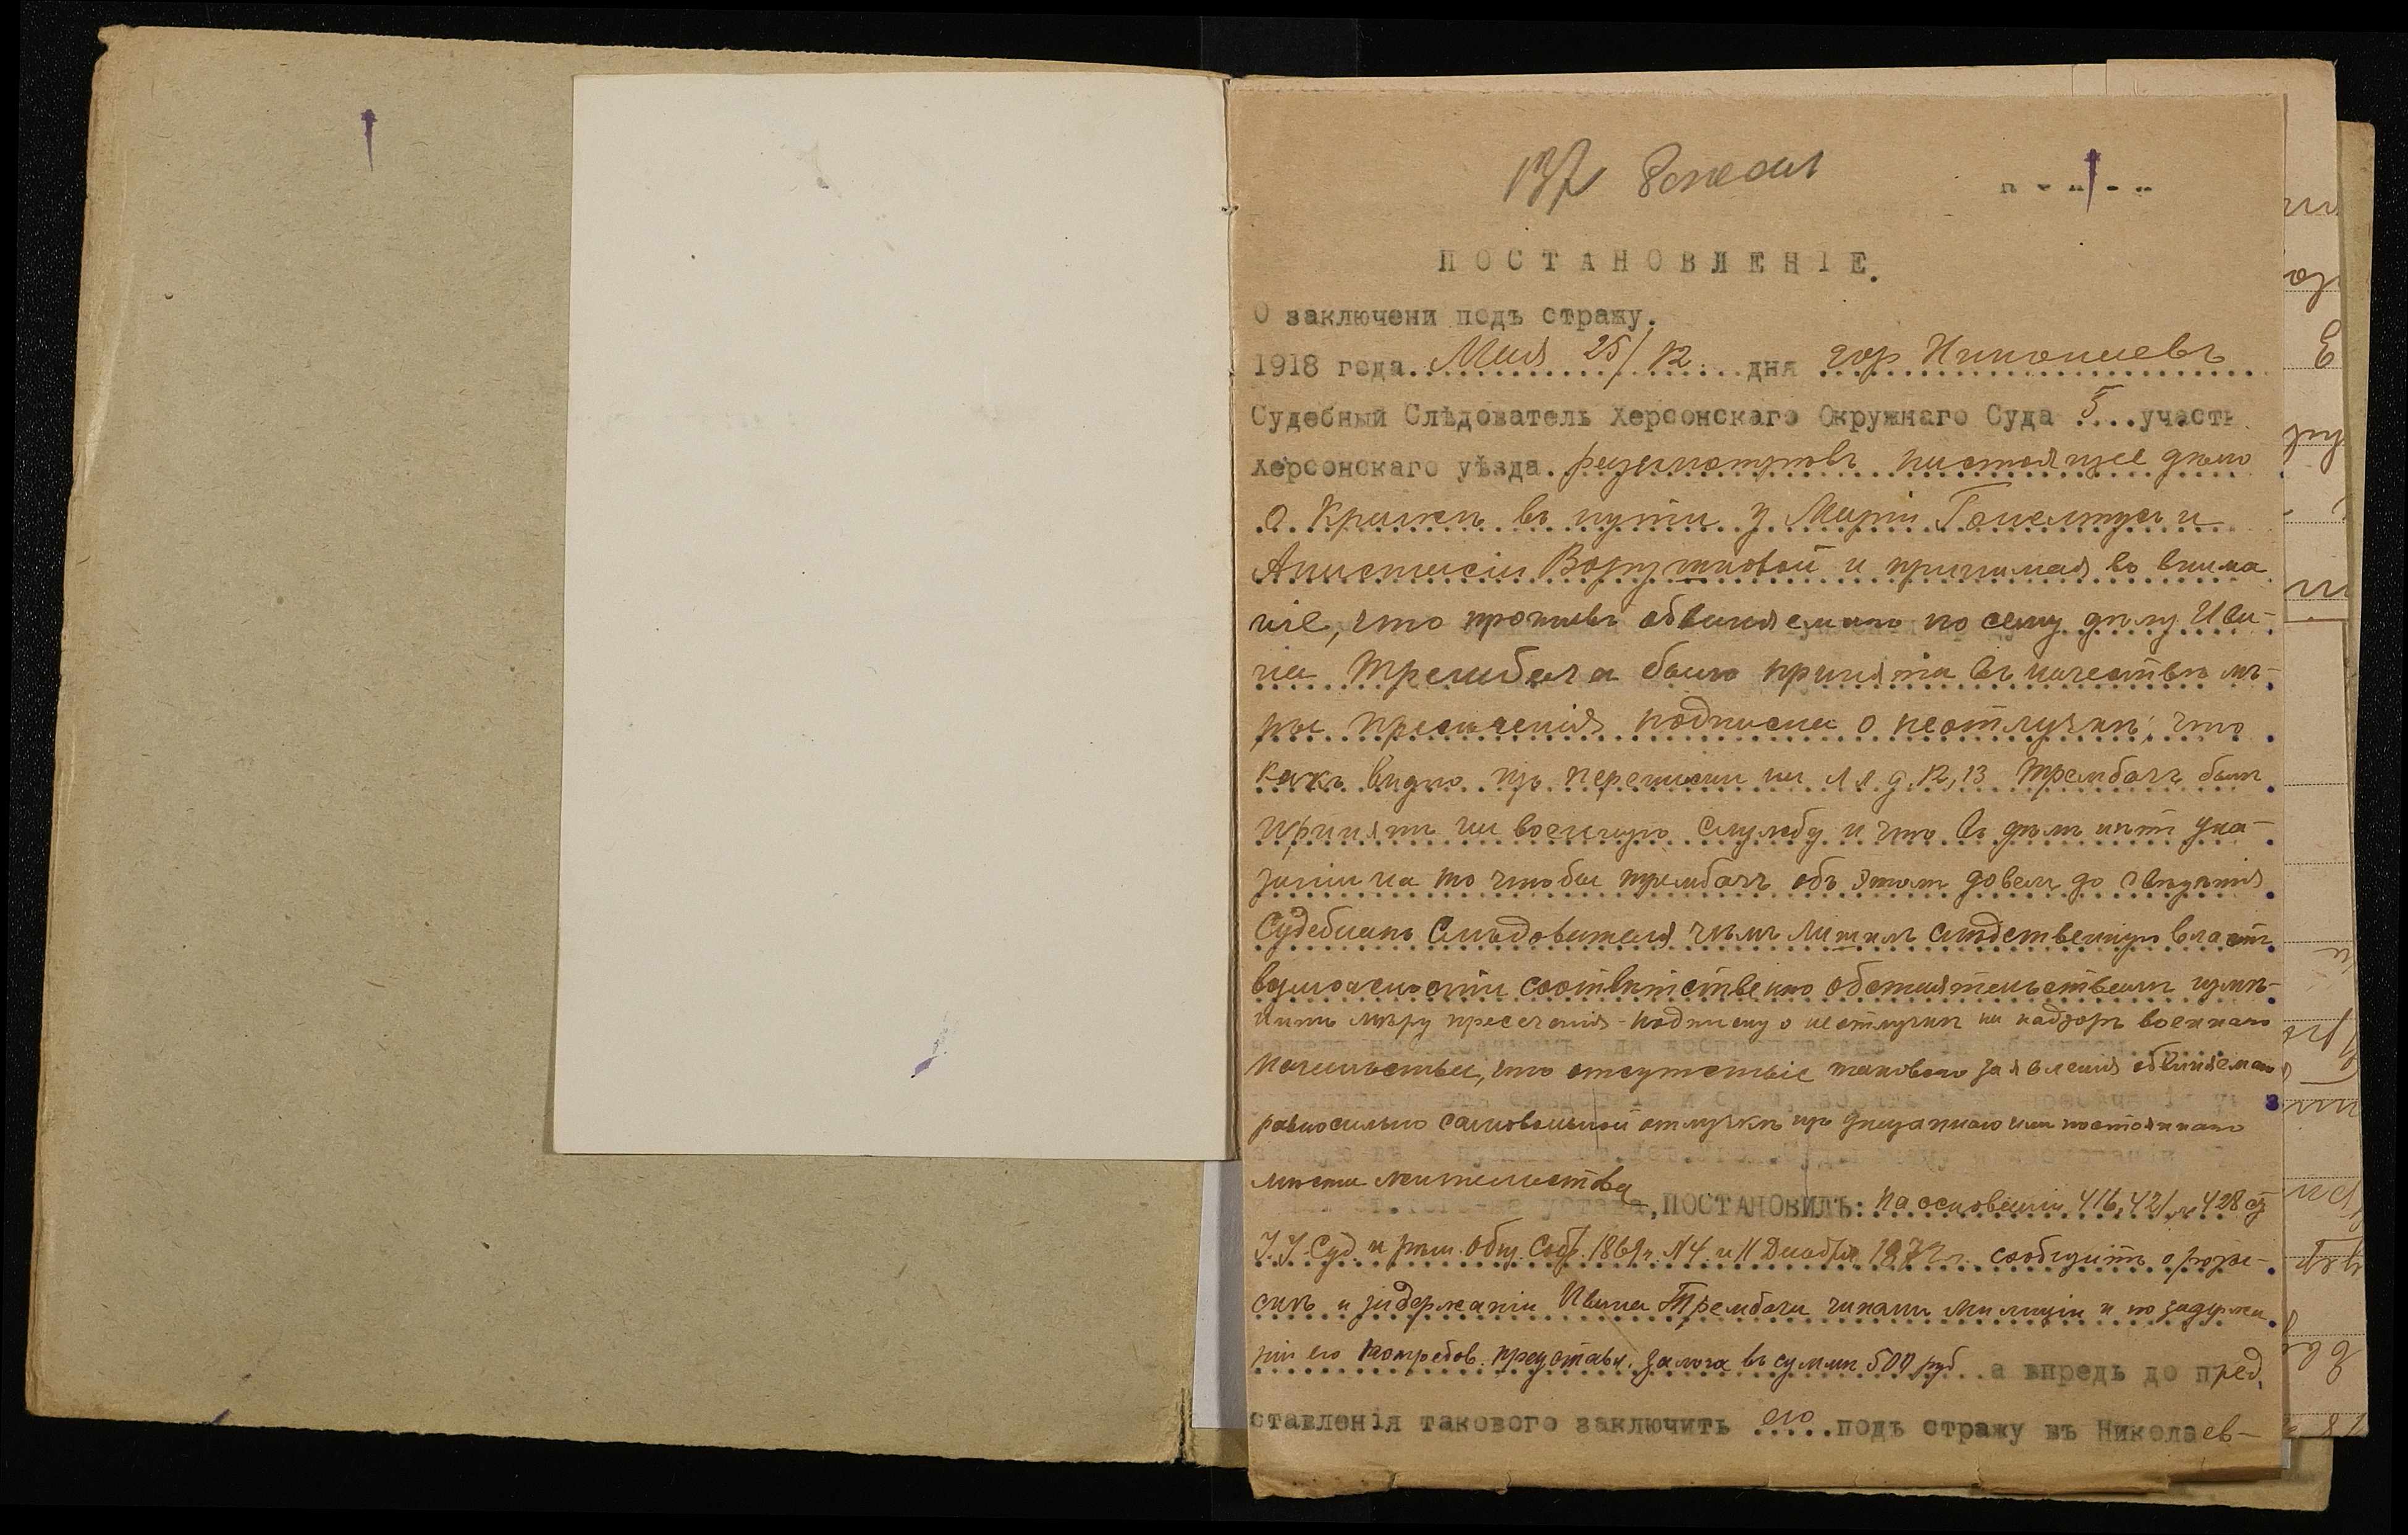 ПОСТАНОВЛЕНІЕ.
О заключени подъ стражу.
1918 года Мая 25/12 дня гор Николаевъ
Судебный Слѣдователь Херсонскаго Окружнаго Суда 5 участк
Херсонскаго уѣзда разсмотрѣвъ настоящее дѣло
о кражѣ въ пути у Маріи и
Анастасіи и принимая во внима
ніе, что противъ обвиняемаго по сему дѣлу Ива-
на Трембача была принята въ качествѣ мѣ-
ры пресѣченія подписка о неотлучкѣ, что
какъ видно изъ переписки на л л д. 12, 13 Трембачъ былъ
принятъ на военную службу и что въ дѣлѣ нѣтъ ука-
заній на то чтобы Трембачъ объ этомъ довелъ до свѣдѣнія
Судебнаго Слѣдователя чѣмъ лишилъ слѣдственную власть
возможности соотвѣтственно обстоятельствамъ измѣ-
нить мѣру пресеченія - подписку о неотлучкѣ на надзоръ военнаго
начальства, что отсутствіе таковаго заявленія обвиняемаго
равносильно самовольной отлучкѣ изъ указаннаго имъ постояннаго
мѣста жительства
, ПОСТАНОВИЛЪ: на основаніи 416, 421 и 428 ст
У. У. Суд. и рѣш. Общ. Собр. 1869 г. N4 и 11 Декабря 1872 г. сообщить о розы-
скѣ и задержаніи Ивана Трембача чинами милиціи и по задержа
ніи его потребов. представл. залога въ суммѣ 500 руб. а впредь до пред
ставленія такового заключить его подъ стражу въ Николаев-